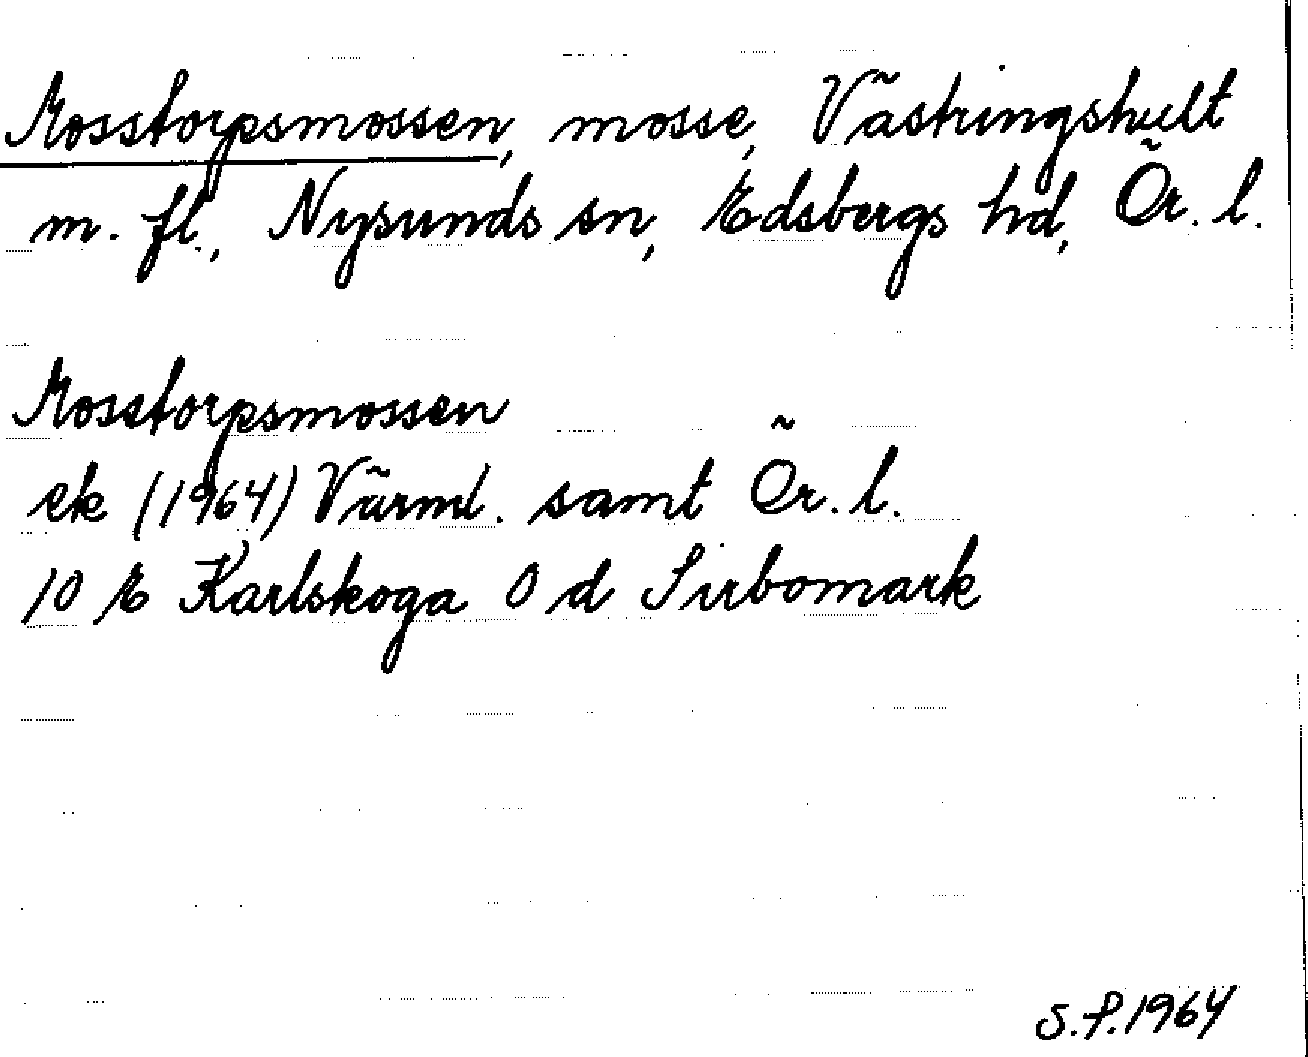 Mosstorpsmossen, mosse, Västringshult
m. fl., Nysunds sn, Edsbergs hd, Ör. l.
Mosstorpsmossen
ek (1964) Värml. samt Ör. l.
10 E Karlskoga 0 d Sirbomark
S.F. 1964